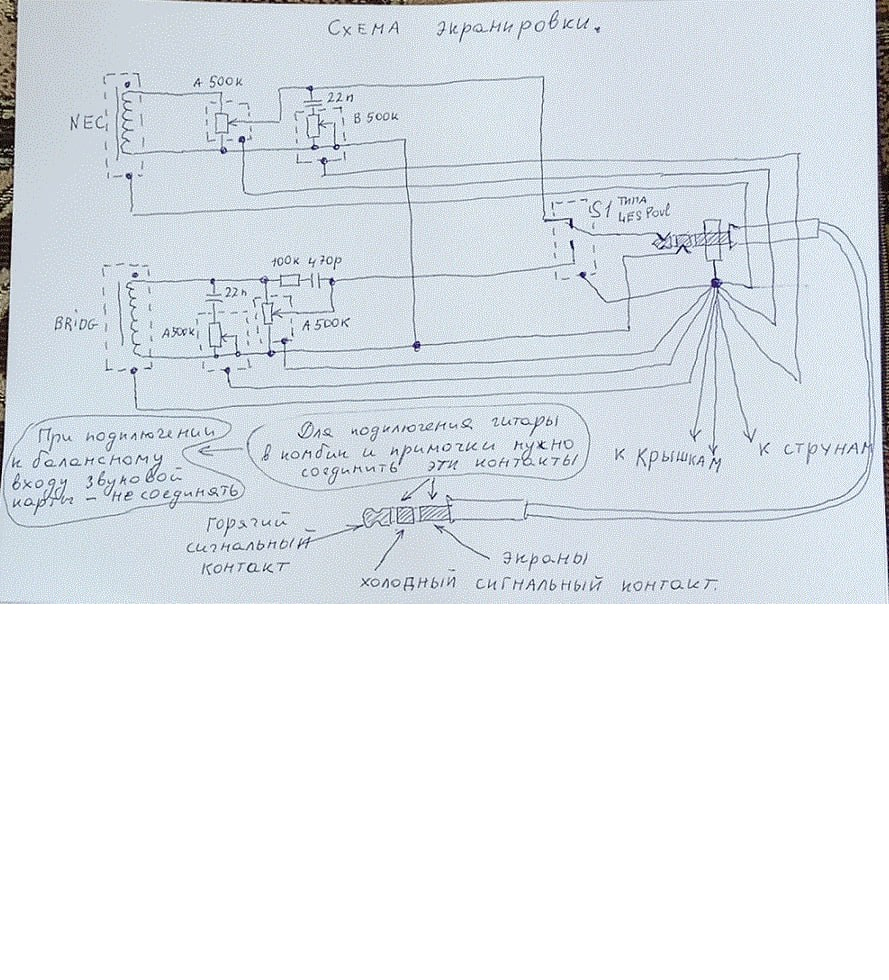 Схема экранировки.
А 500к
22п
В 500к
NEC
S1 ТИПА
LES Povl
100к 470р
22п
BRIDG
А500к
А 500к
При подключении
к балансному
входу звуковой
карты - не соединять
Для подключения гитары
в комбик и примочки нужно
соединить эти контакты
к Крышкам
к струнам
Горячий
сигнальный
контакт
экраны
холодный сигнальный контакт.